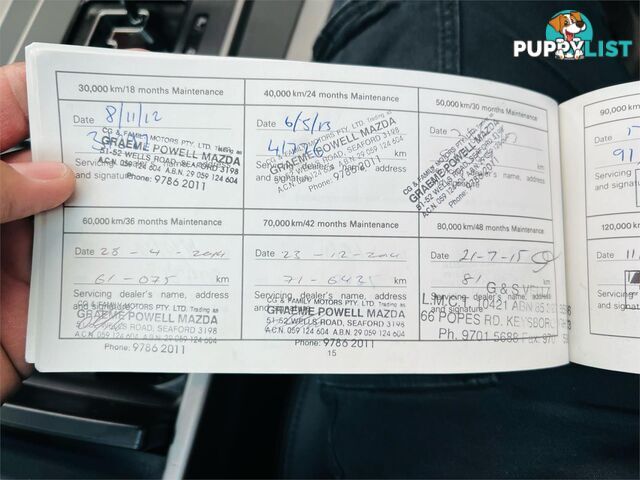 PUPPYLIST
30,000 km/18 months Maintenance
Date 8/11/12
CG & FAMILY MOTORS PTY. LTD. Trading as
GRAEME POWELL MAZDA
51-52 WELLS ROAD, SEAFORD 3198
A.C.N. 059 124 604 A.B.N. 29 059 124 604
Phone: 9786 2011
and signature
40,000 km/24 months Maintenance
Date 6/5/13
km
CG & FAMILY MOTORS PTY. LTD. Trading as
GRAEME POWELL MAZDA
51-52 WELLS ROAD, SEAFORD 3198
A.C.N. 059 124 604 A.B.N. 29 059 124 604
Phone: 9786 2011
Servicing dealer's name, address
and signature
50,000 km/30 months Maintenance
Date
km
CG & FAMILY MOTORS PTY. LTD. Trading as
GRAEME POWELL MAZDA
51-52 WELLS ROAD, SEAFORD 3198
A.C.N. 059 124 604 A.B.N. 29 059 124 604
Phone: 9786 2011
Servicing dealer's name, address
and signature
60,000 km/36 months Maintenance
Date 28-4-2014
61-075 km
Servicing dealer's name, address
and signature
CG & FAMILY MOTORS PTY. LTD. Trading as
GRAEME POWELL MAZDA
51-52 WELLS ROAD, SEAFORD 3198
A.C.N. 059 124 604 A.B.N. 29 059 124 604
Phone: 9786 2011
70,000 km/42 months Maintenance
Date 23-12-2014
km
Servicing dealer's name, address
and signature
CG & FAMILY MOTORS PTY. LTD. Trading as
GRAEME POWELL MAZDA
51-52 WELLS ROAD, SEAFORD 3198
A.C.N. 059 124 604 A.B.N. 29 059 124 604
Phone: 9786 2011
80,000 km/48 months Maintenance
Date 21-7-15
81 km
Servicing dealer's name, address
and signature
G & S
L.M.C.T. 10421 ABN 85
66 POPES RD.
Ph. 9701 5688 Fax.
15
90,000
Date
91
Servicing
and
120,000
Date 11
Servicing
and